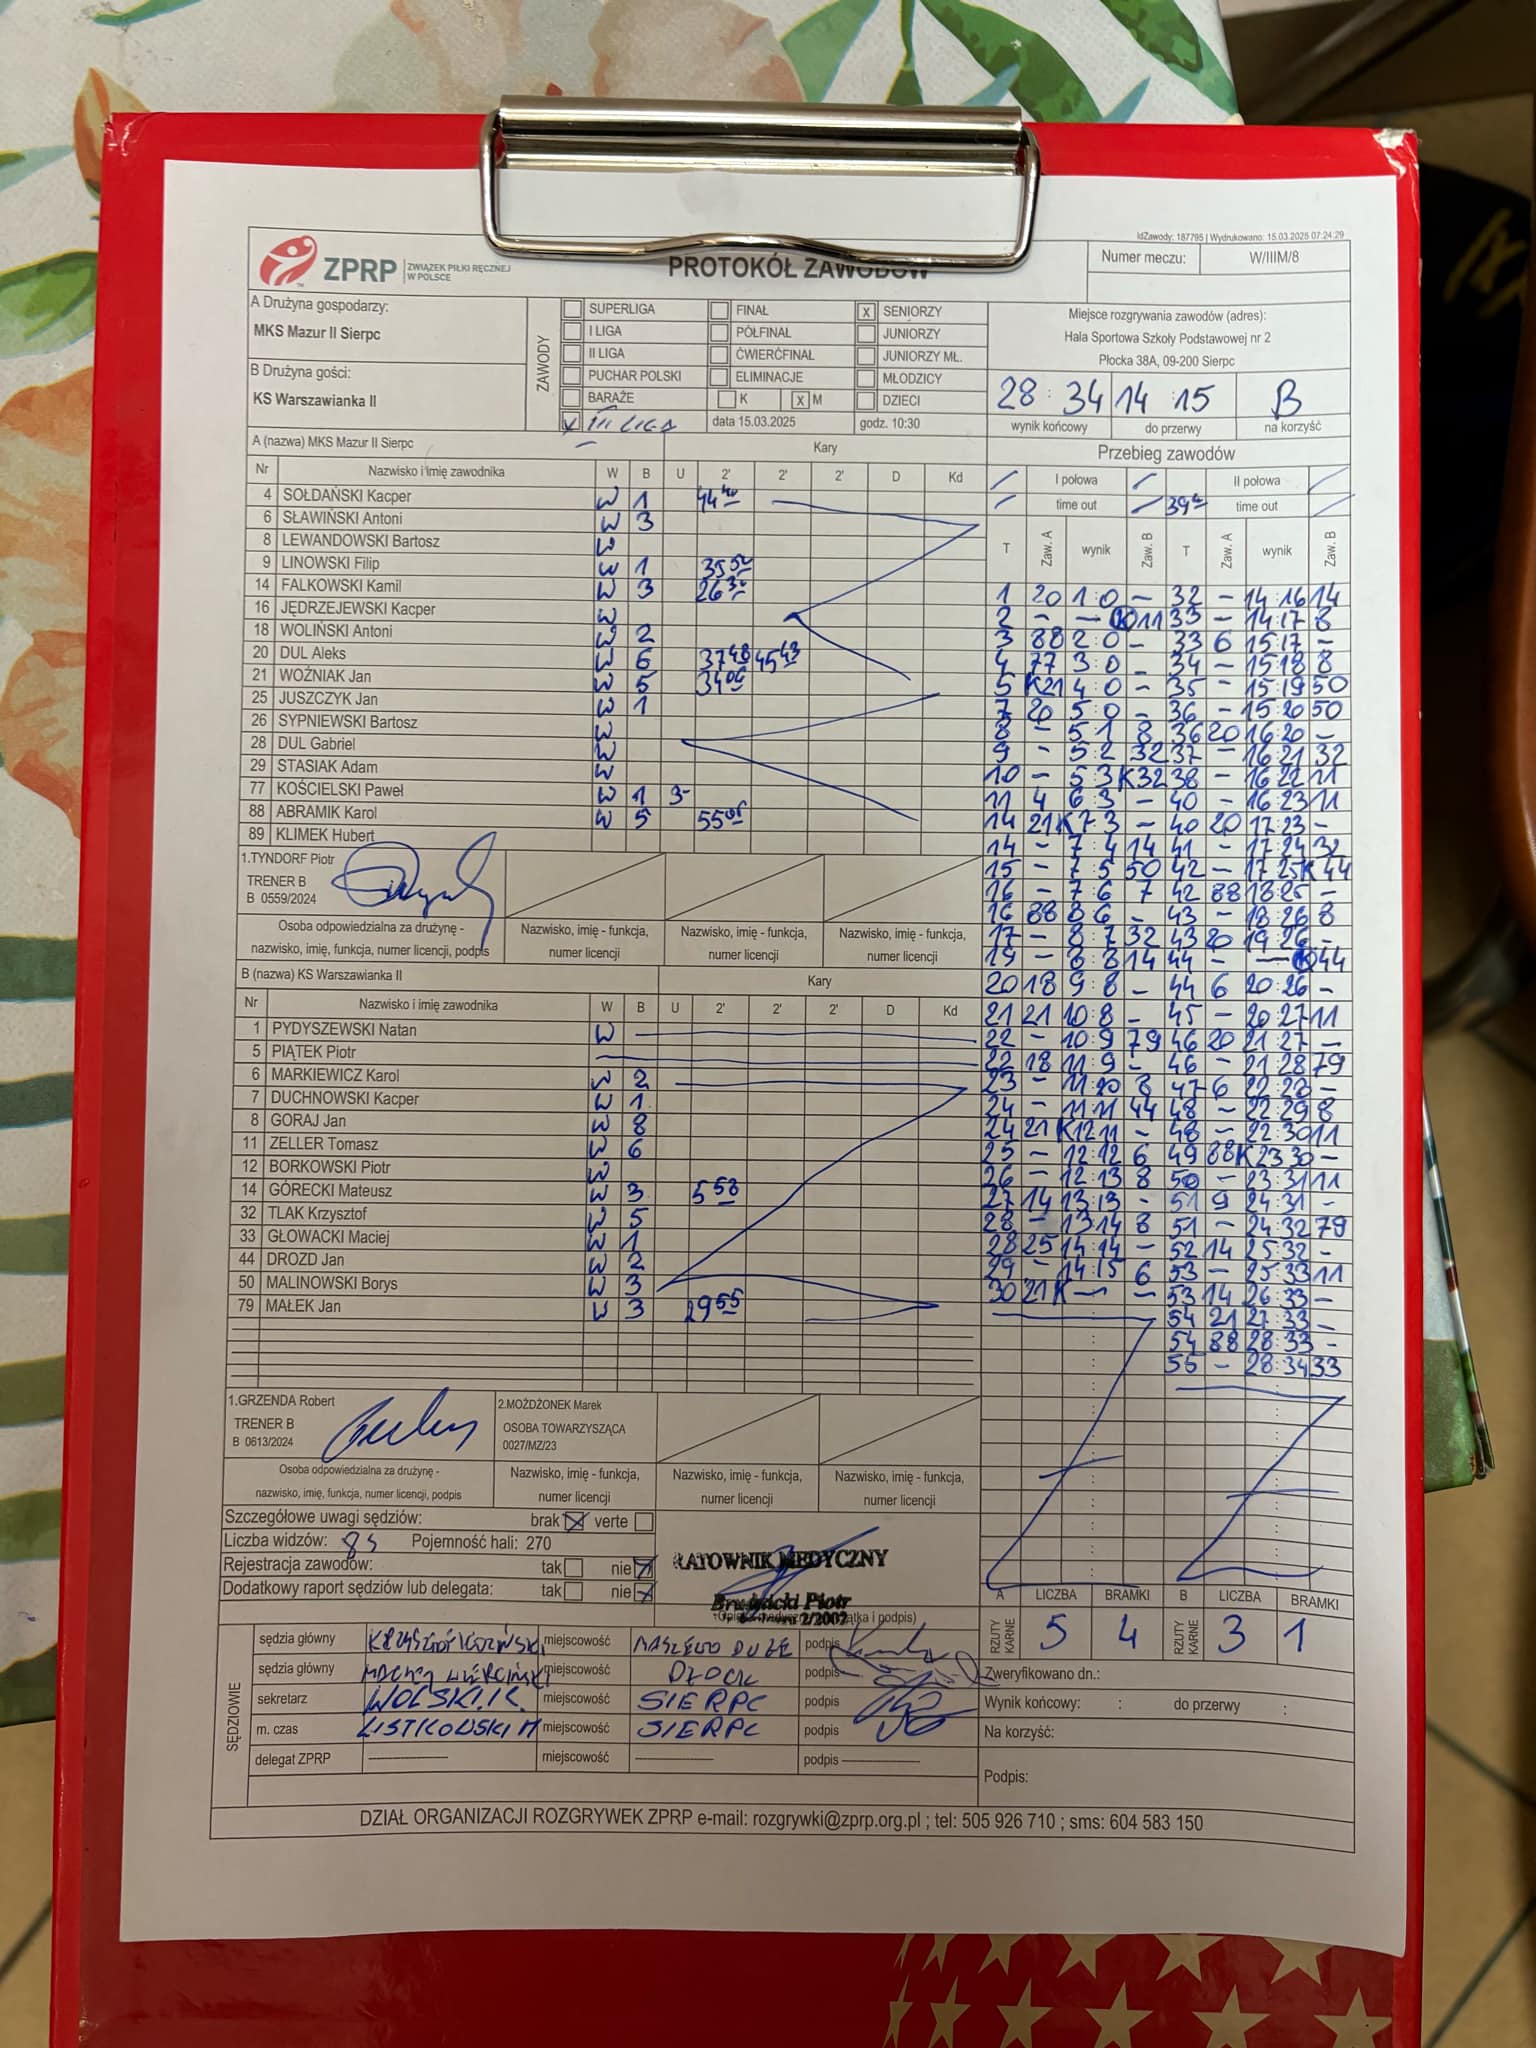 IdZawody: 187795 | Wydrukowano: 15.03.2025 07:24:29
ZPRP ZWIĄZEK PIŁKI RĘCZNEJ
W POLSCE
PROTOKÓŁ ZAWODÓW
Numer meczu: W/IIIM/8
A Drużyna gospodarzy:
MKS Mazur II Sierpc
B Drużyna gości:
KS Warszawianka II
ZAWODY
SUPERLIGA FINAŁ X SENIORZY
I LIGA PÓŁFINAŁ JUNIORZY
II LIGA ĆWIERĆFINAŁ JUNIORZY MŁ.
PUCHAR POLSKI ELIMINACJE MŁODZICY
BARAŻE K X M DZIECI
III LIGA data 15.03.2025 godz. 10:30
Miejsce rozgrywania zawodów (adres):
Hala Sportowa Szkoły Podstawowej nr 2
Płocka 38A, 09-200 Sierpc
28 : 34 14 : 15 B
wynik końcowy do przerwy na korzyść
A (nazwa) MKS Mazur II Sierpc Kary
Nr Nazwisko i imię zawodnika W B U 2' 2' 2' D Kd
4 SOŁDAŃSKI Kacper W 1 44 40
6 SŁAWIŃSKI Antoni W 3
8 LEWANDOWSKI Bartosz W
9 LINOWSKI Filip W 1 35 52
14 FALKOWSKI Kamil W 3
16 JĘDRZEJEWSKI Kacper W
18 WOLIŃSKI Antoni W 2
20 DUL Aleks W 6 37 48 45 43
21 WOŹNIAK Jan W 5 34 06
25 JUSZCZYK Jan W 1
26 SYPNIEWSKI Bartosz W
28 DUL Gabriel W
29 STASIAK Adam W
77 KOŚCIELSKI Paweł W 1 3-
88 ABRAMIK Karol W 5
89 KLIMEK Hubert
1.TYNDORF Piotr
TRENER B
B 0559/2024
Osoba odpowiedzialna za drużynę - Nazwisko, imię - funkcja, Nazwisko, imię - funkcja, Nazwisko, imię - funkcja,
nazwisko, imię, funkcja, numer licencji, podpis numer licencji numer licencji numer licencji
B (nazwa) KS Warszawianka II Kary
Nr Nazwisko i imię zawodnika W B U 2' 2' 2' D Kd
1 PYDYSZEWSKI Natan W
5 PIĄTEK Piotr
6 MARKIEWICZ Karol W 2
7 DUCHNOWSKI Kacper W 1
8 GORAJ Jan W 8
11 ZELLER Tomasz W 6
12 BORKOWSKI Piotr W
14 GÓRECKI Mateusz W 3 5 58
32 TLAK Krzysztof W 5
33 GŁOWACKI Maciej W 1
44 DROZD Jan W 2
50 MALINOWSKI Borys W 3
79 MAŁEK Jan W 3 29 55
1.GRZENDA Robert 2.MOŻDŻONEK Marek
TRENER B OSOBA TOWARZYSZĄCA
B 0613/2024 0027/MZ/23
Osoba odpowiedzialna za drużynę - Nazwisko, imię - funkcja, Nazwisko, imię - funkcja, Nazwisko, imię - funkcja,
nazwisko, imię, funkcja, numer licencji, podpis numer licencji numer licencji numer licencji
Przebieg zawodów
I połowa II połowa
time out time out
T Zaw. A wynik Zaw. B T Zaw. A wynik Zaw. B
1 20 1:0 – 32 – 14:16 14
2 – – K 11 33 – 14:17 8
3 88 2:0 – 33 6 15:17 –
4 77 3:0 – 34 – 15:18 8
5 K21 4:0 – 35 – 15:19 50
7 20 5:0 – 36 – 15:20 50
8 – 5:1 8 36 20 16:20 –
9 – 5:2 32 37 – 16:21 32
10 – 5:3 K32 38 – 16:22 11
11 4 6:3 – 40 – 16:23 11
14 21 K7:3 – 40 20 17:23 –
14 – 7:4 14 41 – 17:24 32
15 – 7:5 50 42 – 17:25 K44
16 – 7:6 7 42 88 18:25 –
16 88 8:6 – 43 – 18:26 8
17 – 8:7 32 43 20 19:26 –
19 – 8:8 14 44 – – K44
20 18 9:8 – 44 6 20:26 –
21 21 10:8 – 45 – 20:27 11
22 – 10:9 79 46 20 21:27 –
22 18 11:9 – 46 – 21:28 79
23 – 11:10 8 47 6 22:28 –
24 – 11:11 44 48 – 22:29 8
24 21 K12:11 – 48 – 22:30 11
25 – 12:12 6 49 88 K23:30 –
26 – 12:13 8 50 – 23:31 11
27 14 13:13 – 51 9 24:31 –
28 – 13:14 8 51 – 24:32 79
28 25 14:14 – 52 14 25:32 –
29 – 14:15 6 53 – 25:33 11
30 21 K – – 53 14 26:33 –
54 21 27:33 –
54 88 28:33 –
55 – 28:34 33
Szczegółowe uwagi sędziów: brak X verte
Liczba widzów: Pojemność hali: 270
Rejestracja zawodów: tak nie X
Dodatkowy raport sędziów lub delegata: tak nie X
RATOWNIK MEDYCZNY
Piotr
A LICZBA BRAMKI B LICZBA BRAMKI
RZUTY KARNE 5 4 RZUTY KARNE 3 1
SĘDZIOWIE
sędzia główny miejscowość podpis
sędzia główny miejscowość podpis
sekretarz WOLSKI.K. miejscowość SIERPC podpis
m. czas LISTKOWSKI M miejscowość SIERPC podpis
delegat ZPRP miejscowość podpis
Zweryfikowano dn.:
Wynik końcowy: : do przerwy :
Na korzyść:
Podpis:
DZIAŁ ORGANIZACJI ROZGRYWEK ZPRP e-mail: rozgrywki@zprp.org.pl ; tel: 505 926 710 ; sms: 604 583 150